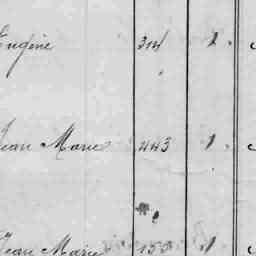 Eugène 314 1.
Jean Marie 443 1.
Jean Marie 153 1